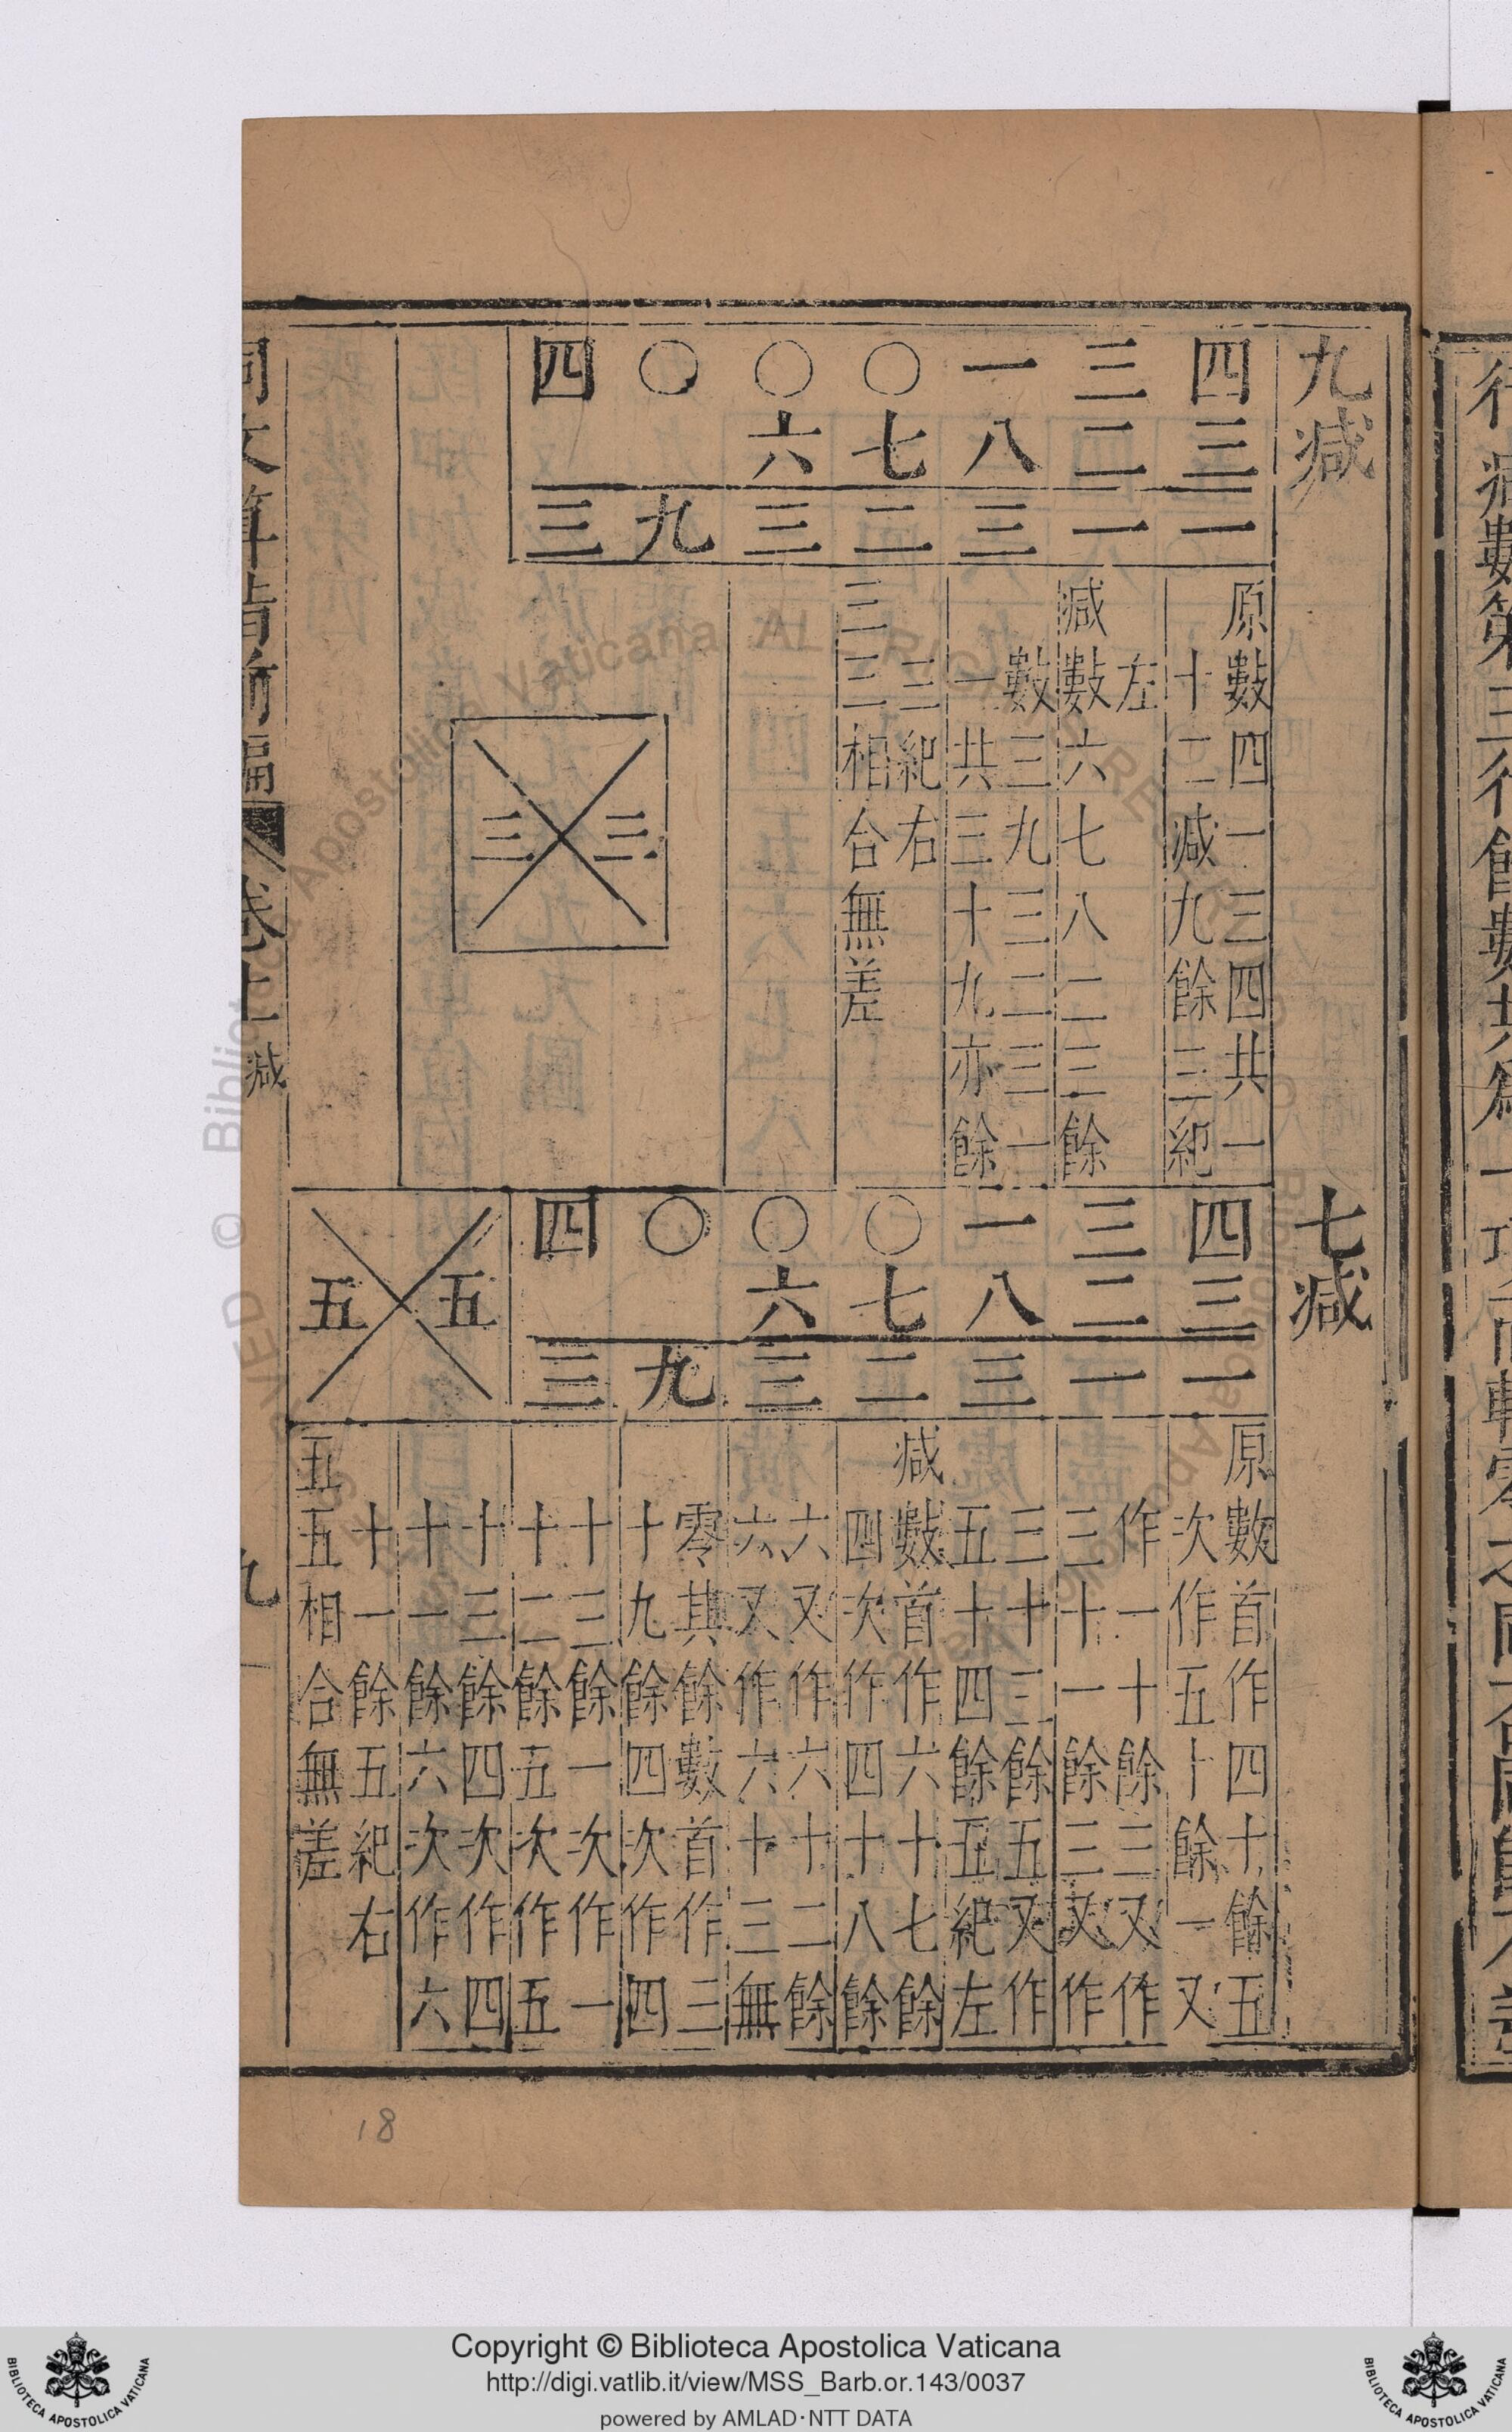 行減數第三行餘數共
九減
四〇〇〇一三四
六七八二三
三九三二三一一
原數四一三四共一
十二減九餘三紀
左
減數六七八二三餘
數三九三二三一
一共三十九亦餘
三紀右
三三相合無差
三 三
七減
四〇〇〇一三四
六七八二三
三九三二三一一
五 五
原數首作四十餘五
次作五十餘一又
作一十餘三又作
三十一餘三又作
三十三餘五又作
五十四餘五紀左
減數首作六十七餘
四次作四十八餘
六又作六十二餘
六又作六十三無
零其餘數首作三
十九餘四次作四
十三餘一次作一
十二餘五次作五
十三餘四次作四
十一餘六次作六
十一餘五紀右
五五相合無差
同文算指前編 卷上 減 九
18
Copyright © Biblioteca Apostolica Vaticana
http://digi.vatlib.it/view/MSS_Barb.or.143/0037
powered by AMLAD·NTT DATA
BIBLIOTECA APOSTOLICA VATICANA
BIBLIOTECA APOSTOLICA VATICANA